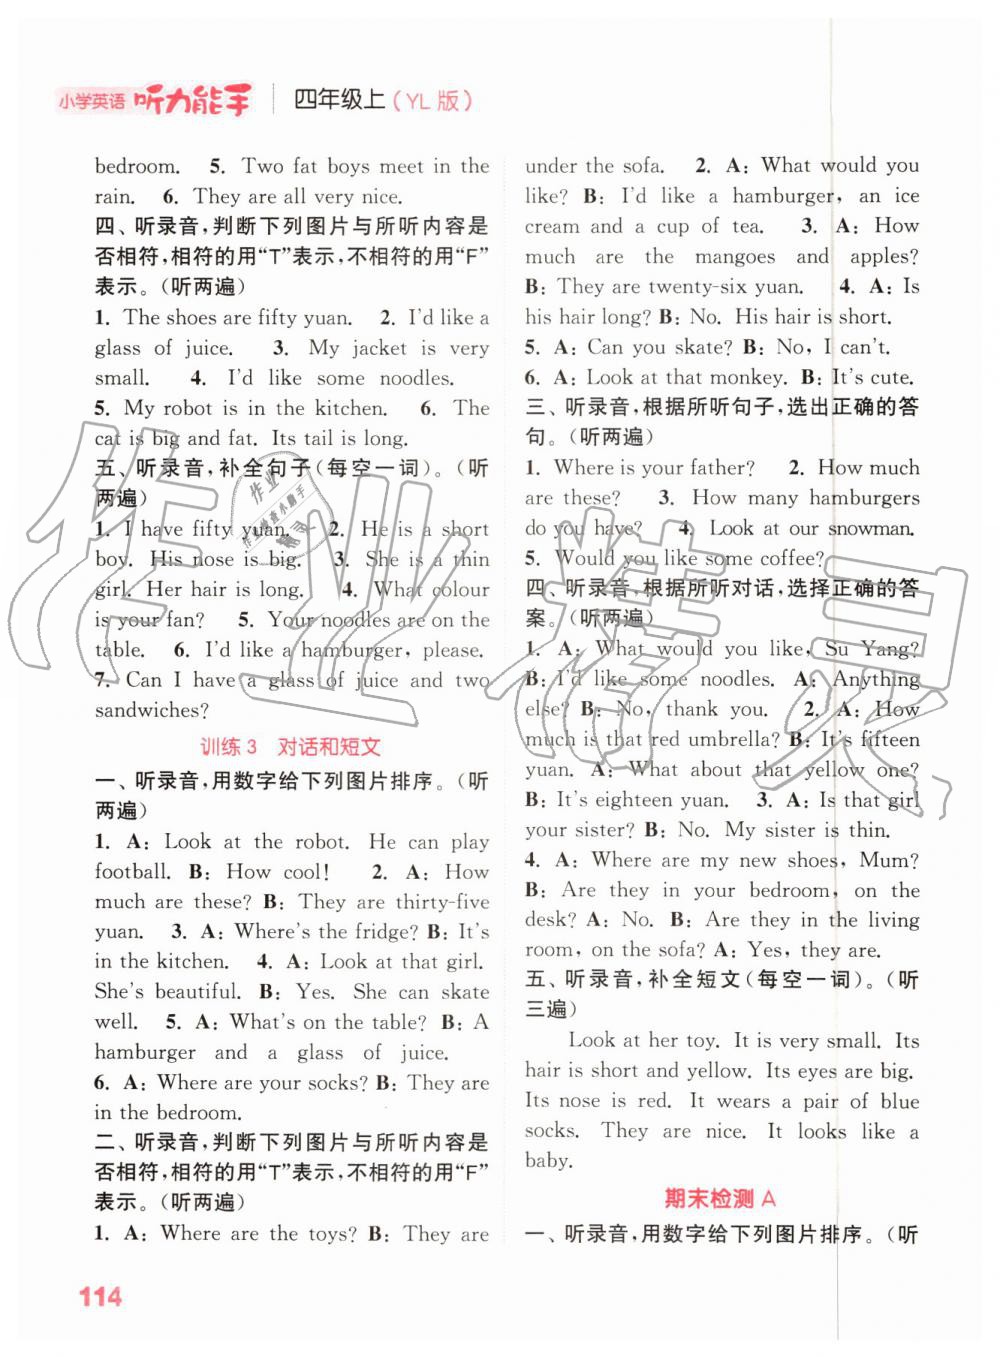 小学英语 听力能手 四年级上(YL版)
bedroom. 5. Two fat boys meet in the
rain. 6. They are all very nice.
四、听录音,判断下列图片与所听内容是
否相符,相符的用“T”表示,不相符的用“F”
表示。(听两遍)
1. The shoes are fifty yuan. 2. I'd like a
glass of juice. 3. My jacket is very
small. 4. I'd like some noodles.
5. My robot is in the kitchen. 6. The
cat is big and fat. Its tail is long.
五、听录音,补全句子(每空一词)。(听
两遍)
1. I have fifty yuan. 2. He is a short
boy. His nose is big. 3. She is a thin
girl. Her hair is long. 4. What colour
is your fan? 5. Your noodles are on the
table. 6. I'd like a hamburger, please.
7. Can I have a glass of juice and two
sandwiches?
训练3 对话和短文
一、听录音,用数字给下列图片排序。(听
两遍)
1. A: Look at the robot. He can play
football. B: How cool! 2. A: How
much are these? B: They are thirty-five
yuan. 3. A: Where's the fridge? B: It's
in the kitchen. 4. A: Look at that girl.
She's beautiful. B: Yes. She can skate
well. 5. A: What's on the table? B: A
hamburger and a glass of juice.
6. A: Where are your socks? B: They are
in the bedroom.
二、听录音,判断下列图片与所听内容是
否相符,相符的用“T”表示,不相符的用“F”
表示。(听两遍)
1. A: Where are the toys? B: They are
under the sofa. 2. A: What would you
like? B: I'd like a hamburger, an ice
cream and a cup of tea. 3. A: How
much are the mangoes and apples?
B: They are twenty-six yuan. 4. A: Is
his hair long? B: No. His hair is short.
5. A: Can you skate? B: No, I can't.
6. A: Look at that monkey. B: It's cute.
三、听录音,根据所听句子,选出正确的答
句。(听两遍)
1. Where is your father? 2. How much
are these? 3. How many hamburgers
do you have? 4. Look at our snowman.
5. Would you like some coffee?
四、听录音,根据所听对话,选择正确的答
案。(听两遍)
1. A: What would you like, Su Yang?
B: I'd like some noodles. A: Anything
else? B: No, thank you. 2. A: How
much is that red umbrella? B: It's fifteen
yuan. A: What about that yellow one?
B: It's eighteen yuan. 3. A: Is that girl
your sister? B: No. My sister is thin.
4. A: Where are my new shoes, Mum?
B: Are they in your bedroom, on the
desk? A: No. B: Are they in the living
room, on the sofa? A: Yes, they are.
五、听录音,补全短文(每空一词)。(听
三遍)
Look at her toy. It is very small. Its
hair is short and yellow. Its eyes are big.
Its nose is red. It wears a pair of blue
socks. They are nice. It looks like a
baby.
期末检测A
一、听录音,用数字给下列图片排序。(听
114
作业精灵